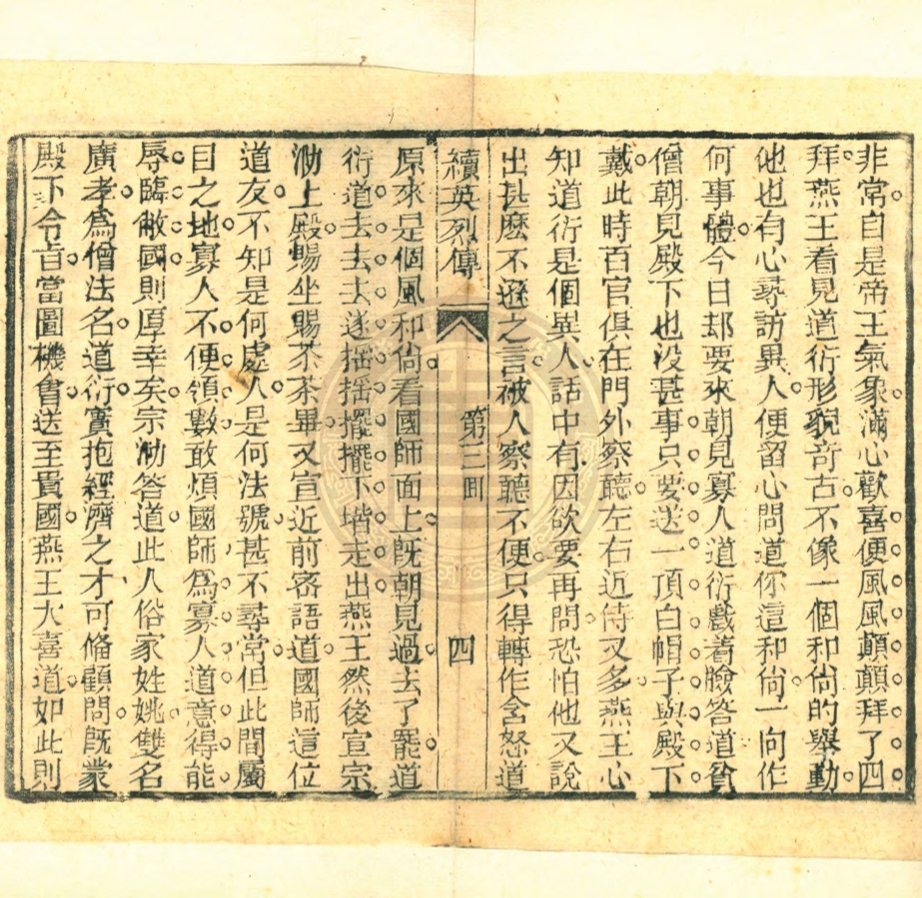 非常自是帝王氣象滿心歡喜便風風顛顛拜了四
拜燕王看見道衍形貌竒古不像一個和尚的舉動
他也有心尋訪異人便畱心問道你這和尚一向作
何事體今日却要來朝見寡人道衍戲着臉答道貧
僧朝見殿下也没甚事只要送一頂白帽子與殿下
戴此時百官俱在門外察聽左右近侍又多燕王心
知道衍是個異人話中有因欲要再問恐怕他又說
出甚麽不遜之言被人察聽不便只得轉作含怒道
續英烈傳 第三囘 四
原來是個風和尚看國師面上旣朝見過去了罷道
衍道去去去遂摇摇擺擺下堦走出燕王然後宣宗
泐上殿賜坐賜茶茶畢又宣近前宻語道國師這位
道友不知是何處人是何法號甚不尋常但此間屬
目之地寡人不便領數敢煩國師為寡人道意得能
辱臨敝國則厚幸矣宗泐答道此人俗家姓姚雙名
廣孝爲僧法名道衍實抱經濟之才可俻顧問旣蒙
殿下令旨當圖機會送至貴國燕王大喜道如此則